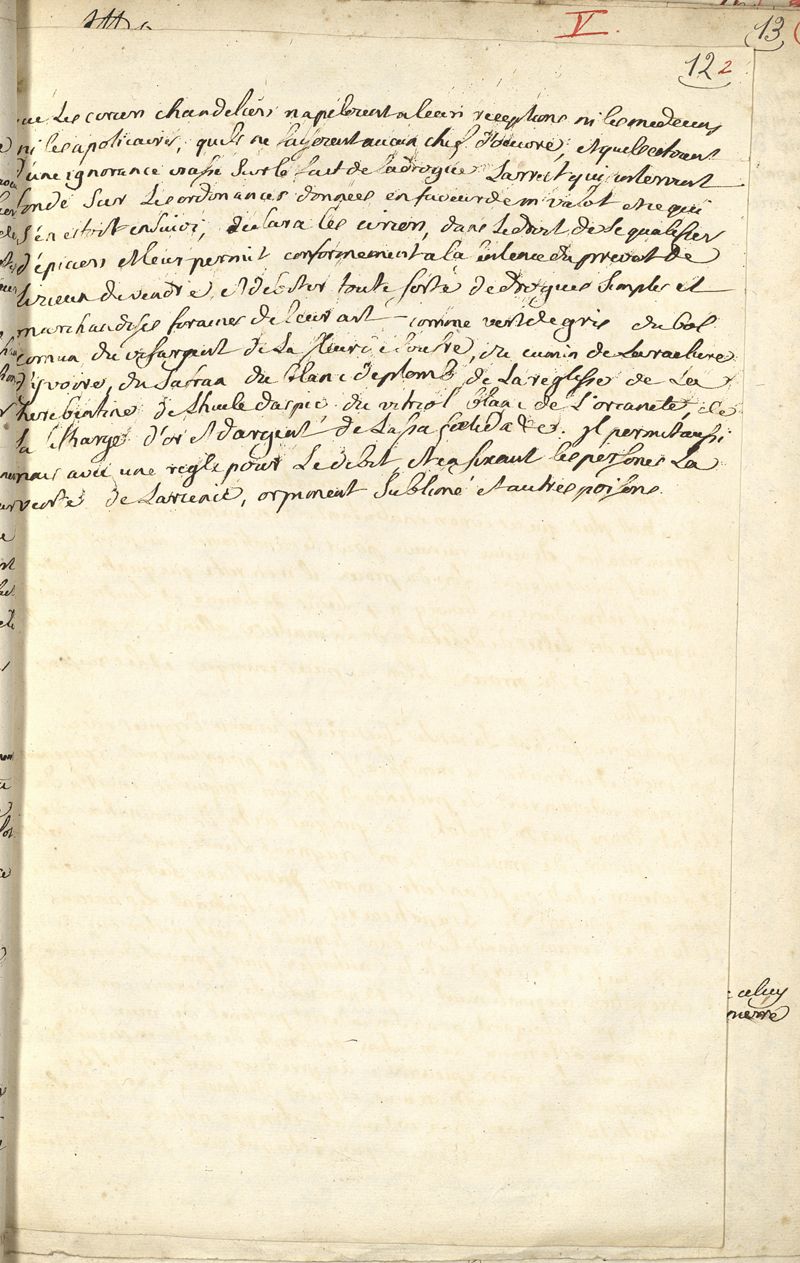 V.
13
12 2
que les ciriers chandeliers n'apeloient a leurs receptions ni les medecins
ni les apoticaires, quils ne faisoient aucun chef d'oeuvre, et quils etoient
d'une ignorance crasse sur le fait de la drogue Larrest qui intervint
fondé sur les ordonances données en faveur de et ce qui
s'en estoit ensuivi, declara les ciriers, dans le droit de se qualifier
d'epiciers et leur permit conformement a la sentence du prevost de
de vendre, et debiter toute sorte de drogues simples et
marchandises foraines de leur art comme vert de gris du bol
comun du vif argent de la fleur de soufre, du cumin de la racleure
d'yvoire, du safran du blanc de plomb, de la reglisse de la
therebentine de lhuile daspic du vitriol blanc de l'orcanete, de
la litharge d'or et d'argent de Lassa foetida &c. Il permit aussi
mais avec une regle pour le debit, et en fixant les persones La
vente de Larcenic, orpiment sublimé et autres poisons.